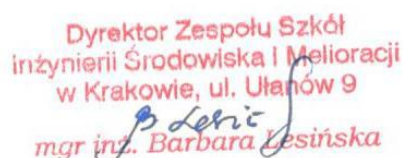 Dyrektor Zespołu Szkół
inżynierii Środowiska i Melioracji
w Krakowie, ul. Ułanów 9
mgr inż. Barbara Lesińska